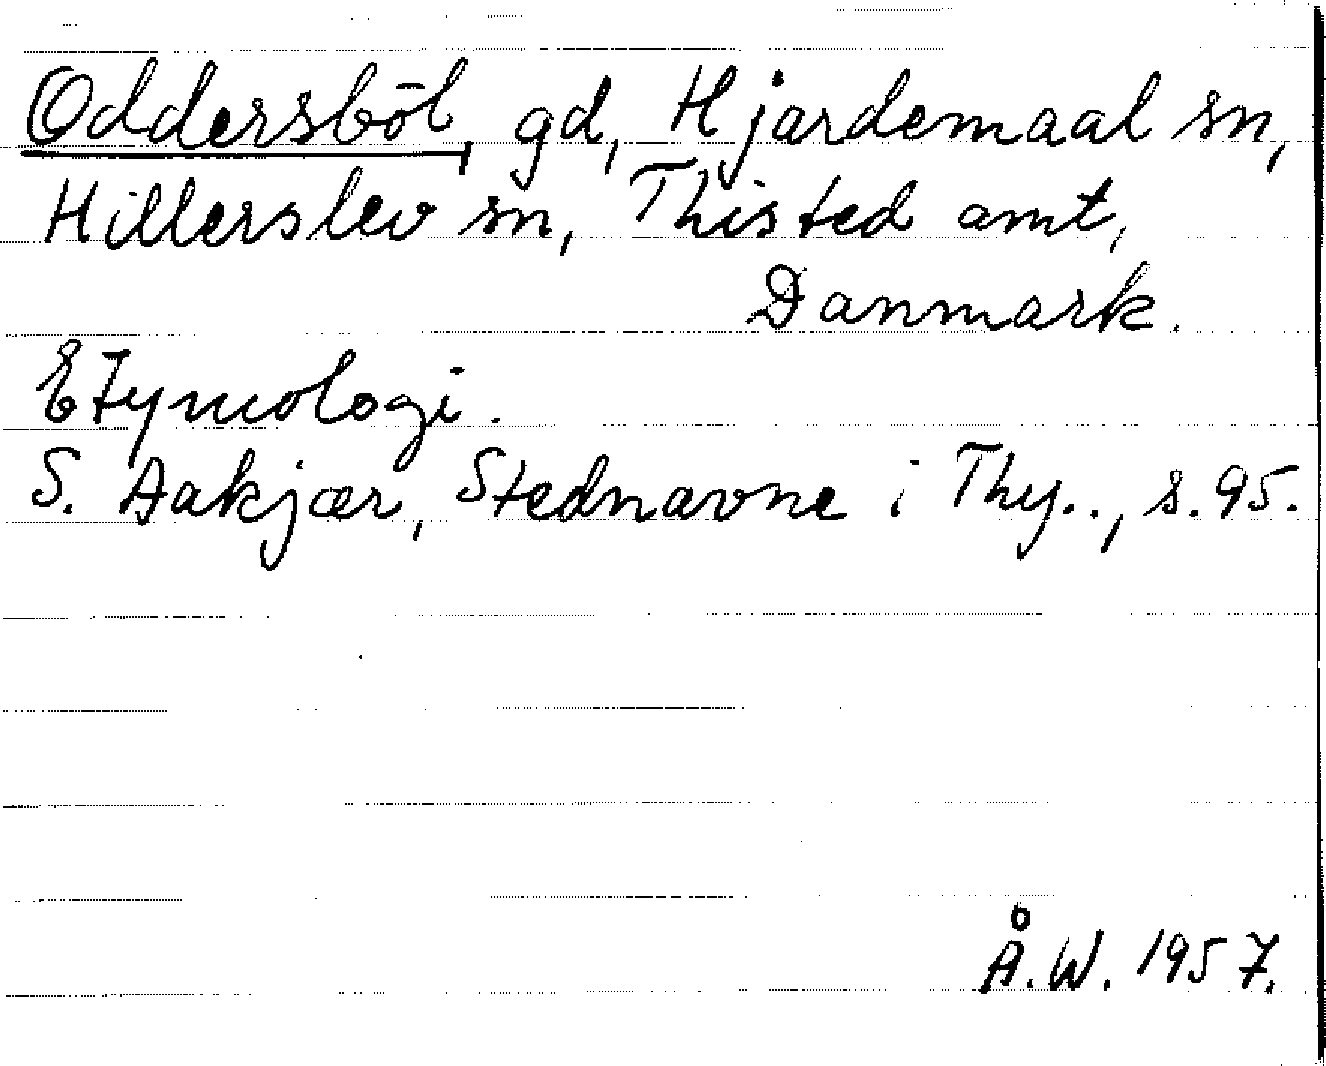 Oddersböl, gd, Hjardemaal sn,
Hillerslev sn, Thisted amt,
Danmark.
Etymologi.
S. Aakjær, Stednavne i Thy.., s. 95.
Å.W. 1957.